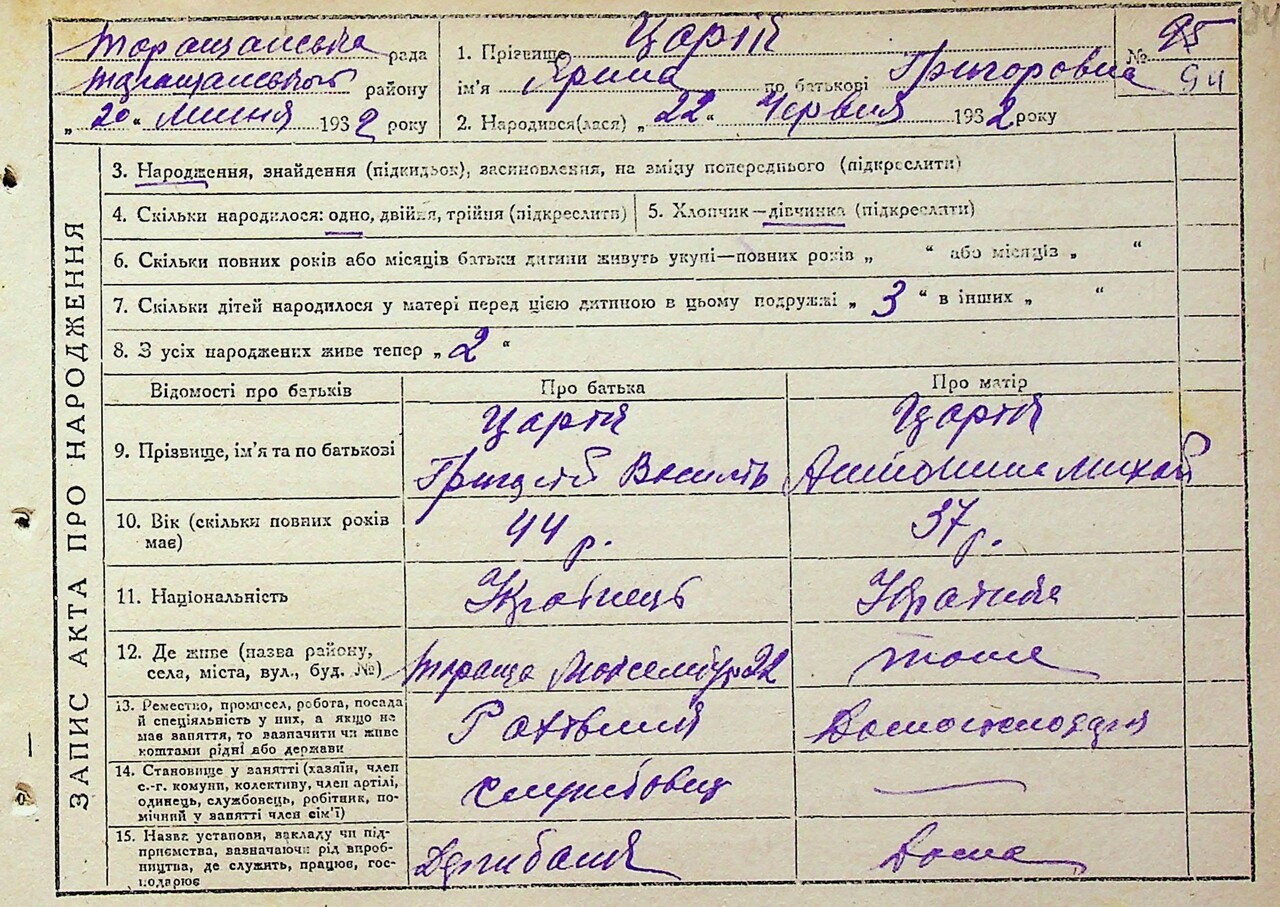 Таращанська рада
Таращанського району
„ 20 “ липня 1932 року
1. Прізвище Царій
ім'я Ярина по батькові Григоровна
2. Народився(лася) „ 22 “ Червня 1932 року
№ 95
94
ЗАПИС АКТА ПРО НАРОДЖЕННЯ
3. Народження, знайдення (підкидьок), засиновлення, на зміну попереднього (підкреслити)
4. Скільки народилося: одно, двійня, трійня (підкреслити) 5. Хлопчик—дівчинка (підкреслити)
6. Скільки повних років або місяців батьки дитини живуть укупі—повних років „ “ або місяців „ “
7. Скільки дітей народилося у матері перед цією дитиною в цьому подружжі „ 3 “ в інших „ “
8. З усіх народжених живе тепер „ 2 “
Відомості про батьків Про батька Про матір
9. Прізвище, ім'я та по батькові
Царій
Григорій Василь
Царій
Антонина Михай
10. Вік (скільки повних років
має)
44 р.
37 р.
11. Національність Українець Українка
12. Де живе (назва району,
села, міста, вул., буд. №)
Тараща 22
тоже
13. Ремество, промисел, робота, посада
й спеціяльність у них, а якщо не
має заняття, то вазначити чи живе
коштами рідні або держави
Рахівник
Домогосподарня
14. Становище у занятті (хазяїн, член
с.-г. комуни, колективу, член артілі,
одинець, службовець, робітник, по-
мічний у занятті член сім'ї)
службовец
15. Назва установи, закладу чи під-
приємства, вазначаючи рід вироб-
ництва, де служить, працює, гос-
подарює
Держбанк
Дома